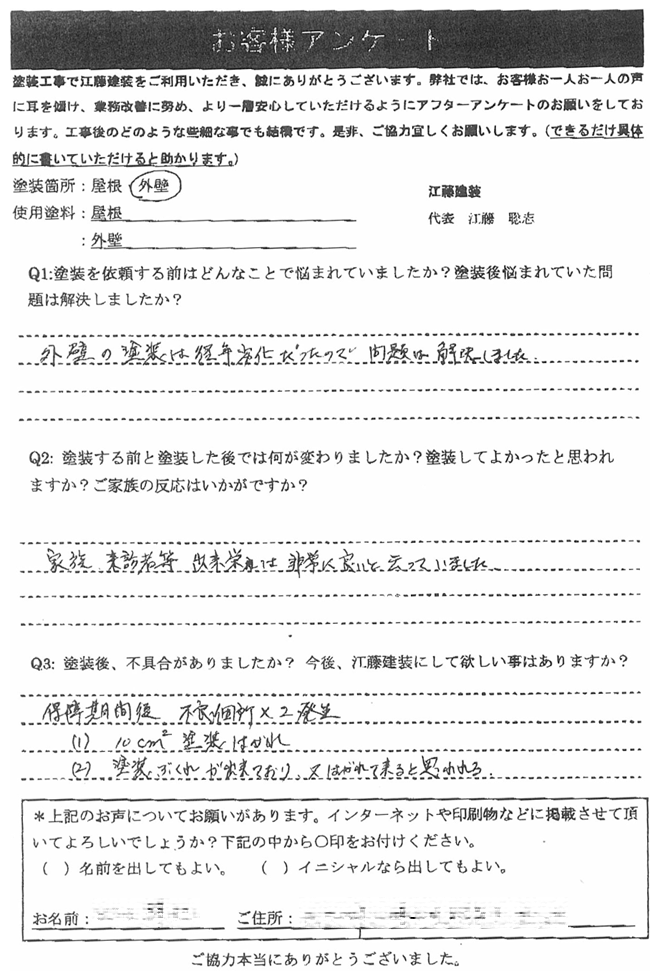 お客様アンケート
塗装工事で江藤建装をご利用いただき、誠にありがとうございます。弊社では、お客様お一人お一人の声
に耳を傾け、業務改善に努め、より一層安心していただけるようにアフターアンケートのお願いをしてお
ります。工事後のどのような些細な事でも結構です。是非、ご協力宜しくお願いします。(できるだけ具体
的に書いていただけると助かります。)
塗装箇所：屋根・外壁
江藤建装
使用塗料：屋根
代表 江藤 聡志
：外壁
Q1:塗装を依頼する前はどんなことで悩まれていましたか？塗装後悩まれていた問
題は解決しましたか？
外壁の塗装は経年劣化だったので 問題は解決しました.
Q2: 塗装する前と塗装した後では何が変わりましたか？塗装してよかったと思われ
ますか？ご家族の反応はいかがですか？
家族 来訪者等 出来栄えは非常に良いと云っていました
Q3: 塗装後、不具合がありましたか？ 今後、江藤建装にして欲しい事はありますか？
保障期間後 不良個所×2発生
(1) 10cm² 塗装はがれ
(2) 塗装ぶくれが出来ており、又はがれて来ると思われる.
＊上記のお声についてお願いがあります。インターネットや印刷物などに掲載させて頂
いてよろしいでしょうか？下記の中から〇印をお付けください。
（ ）名前を出してもよい。 （ ）イニシャルなら出してもよい。
お名前： ご住所：
ご協力本当にありがとうございました。